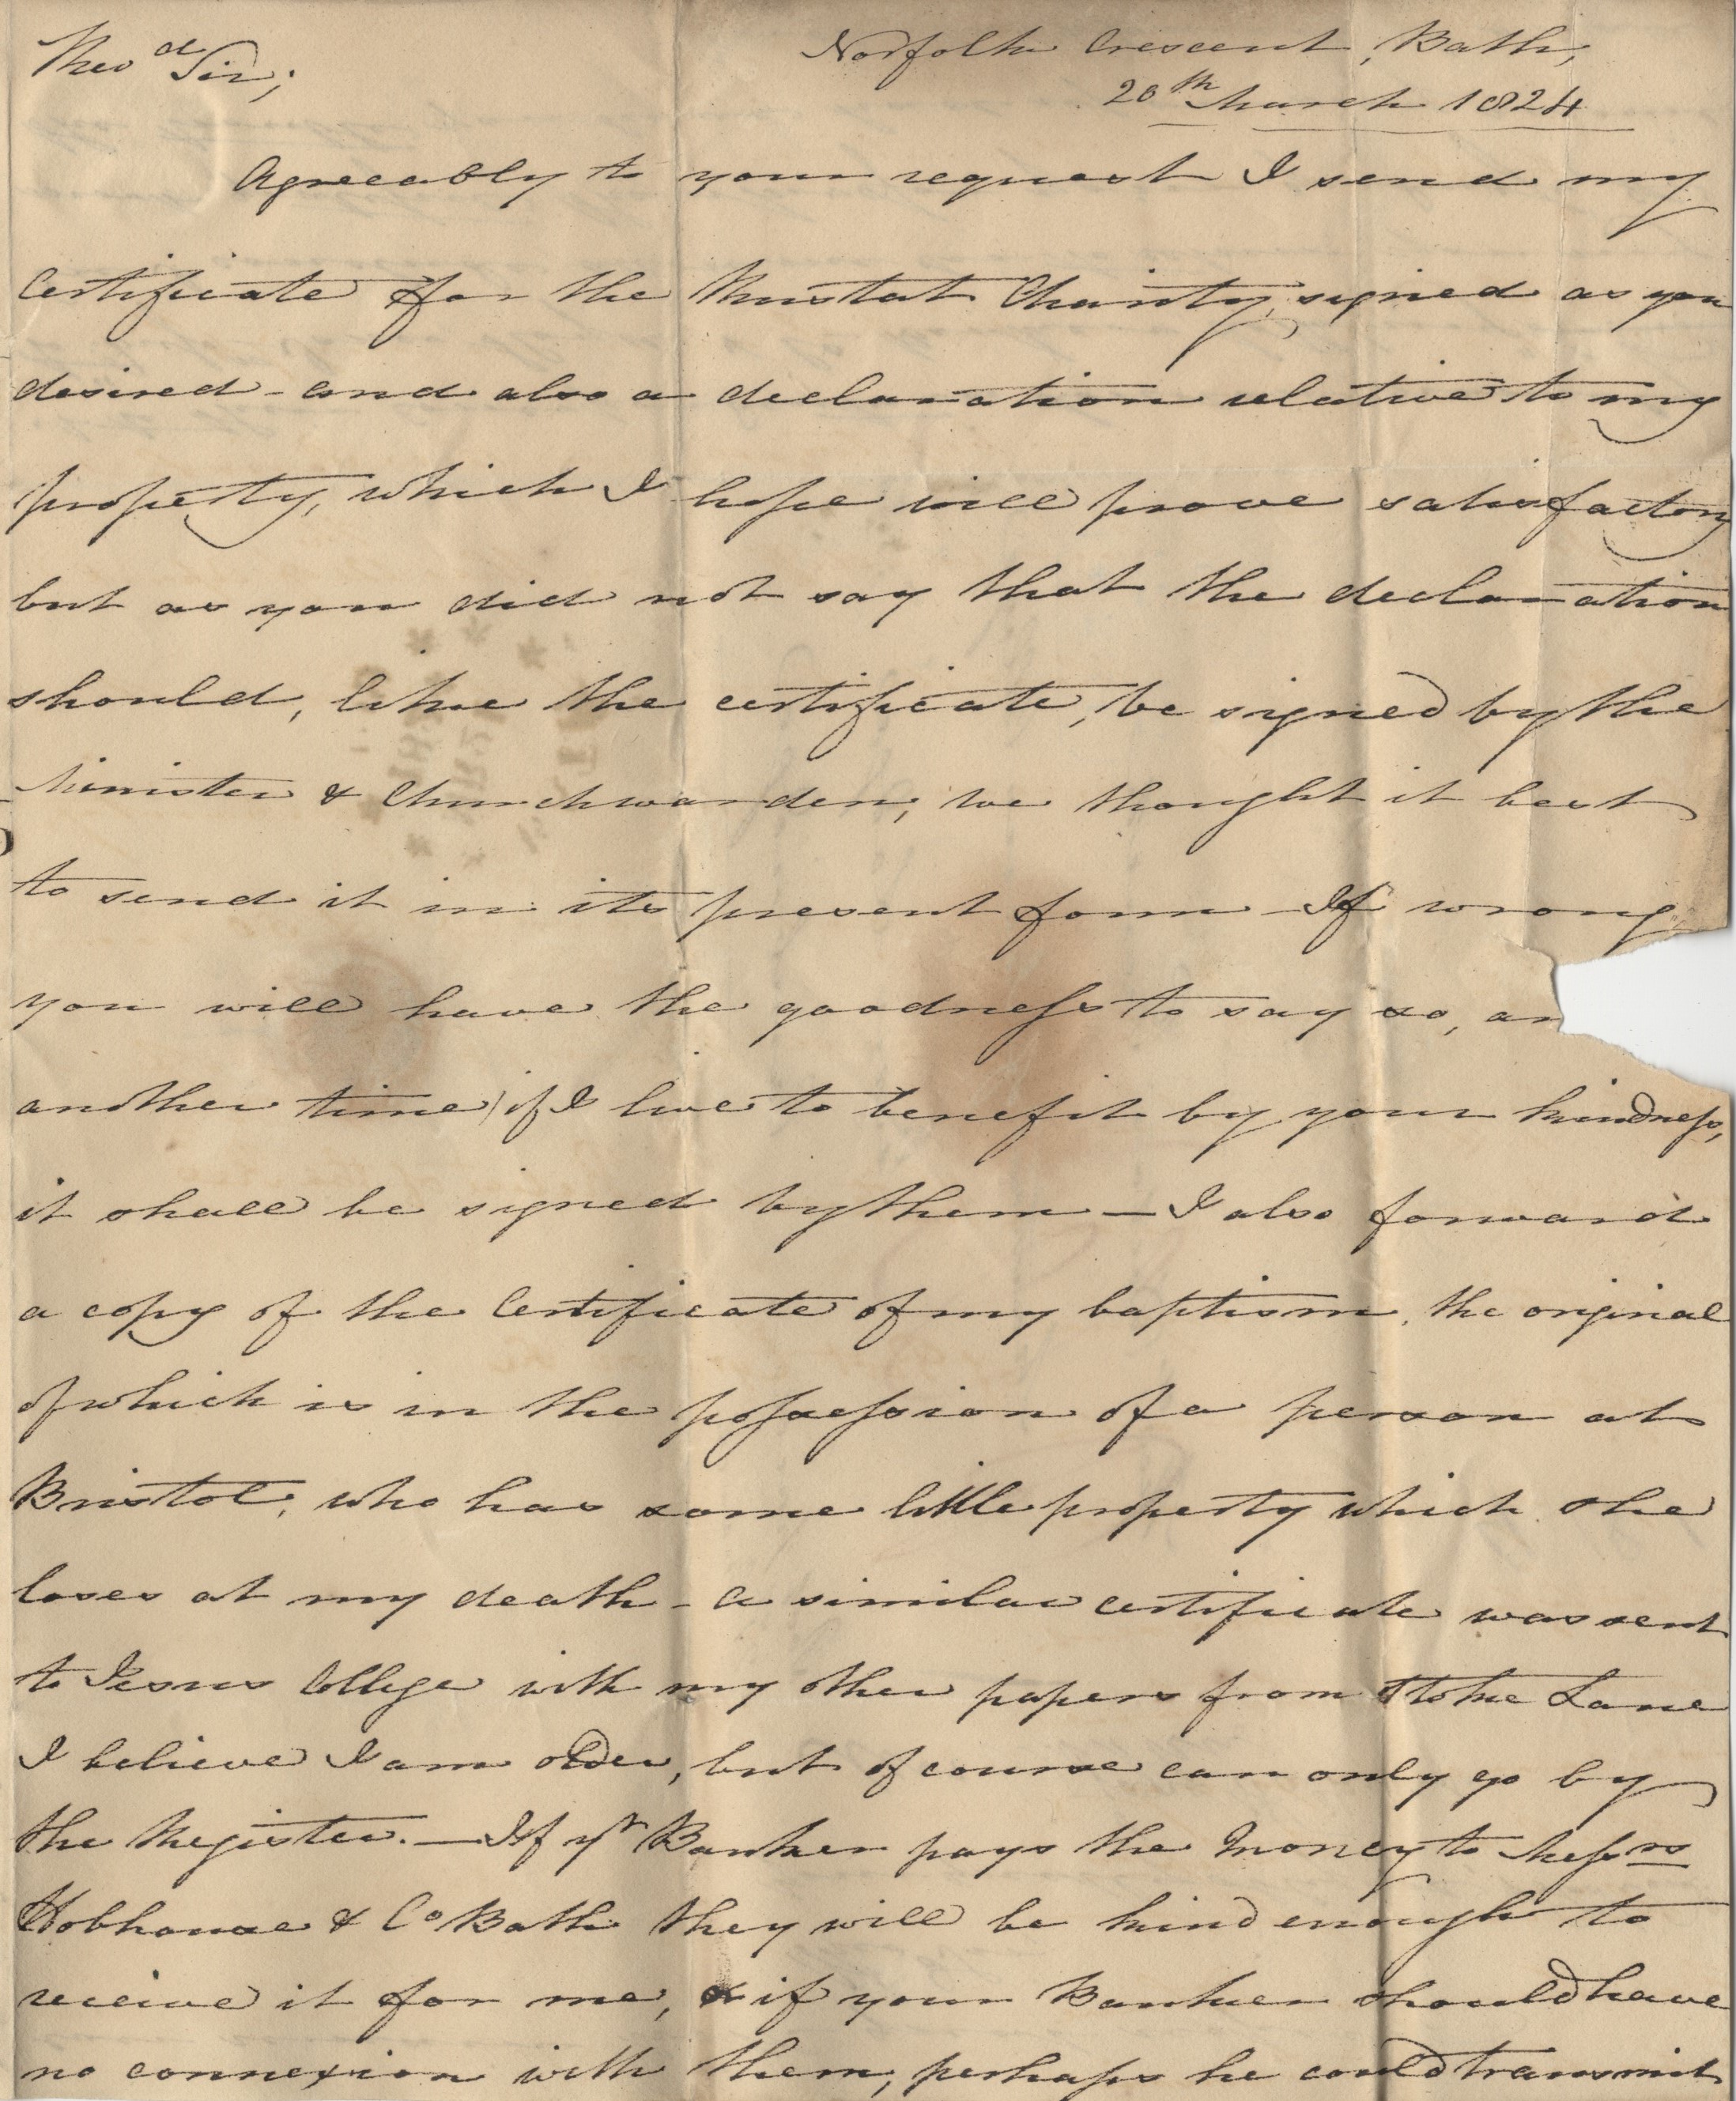 Rev.d Sir;
Norfolk Crescent, Bath,
20th March 1824
Agreeably to your request I send my
Certificate for the Rustat Charity, signed as you
desired - and also a declaration relative to my
property, which I hope will prove satisfactory
but as you did not say that the declaration
should, like the certificate, be signed by the
Minister & Churchwarden, we thought it best
to send it in its present form - If wrong
you will have the goodness to say so, an
another time, if I live to benefit by your kindness,
it shall be signed by them — I also forward
a copy of the Certificate of my baptism, the original
of which is in the possession of a person at
Bristol, who has some little property which she
loses at my death - a similar certificate was sent
to Jesus College with my other papers from Stoke Lane
I believe I am older, but of course can only go by
the Register. — If yr Banker pays the Money to Messrs
Hobhouse & Co Bath they will be kind enough to
receive it for me, & if your Banker should have
no connexion with them, perhaps he could transmit